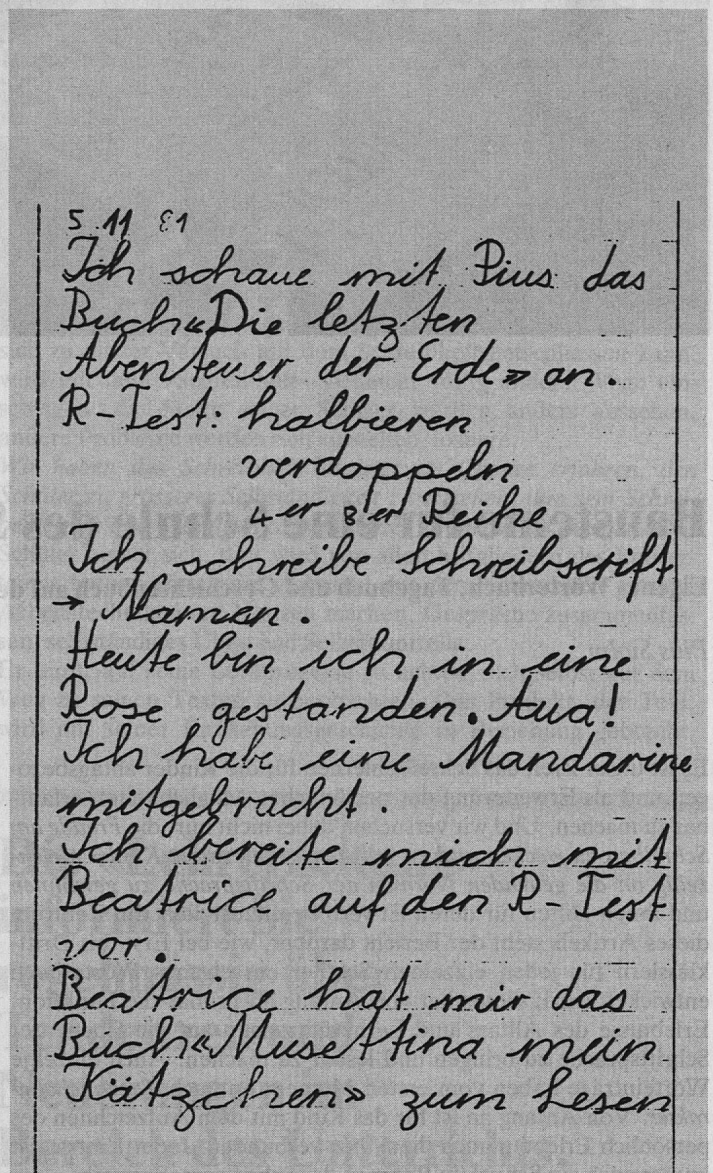 5. 11 81
Ich schaue mit Pius das
Buch «Die letzten
Abenteuer der Erde» an.
R-Test: halbieren
verdoppeln
4er 8er Reihe
Ich schreibe Schreibscrift
→ Namen.
Heute bin ich in eine
Rose gestanden. Aua!
Ich habe eine Mandarine
mitgebracht.
Ich bereite mich mit
Beatrice auf den R-Test
vor.
Beatrice hat mir das
Buch «Musettina mein
Kätzchen» zum Lesen